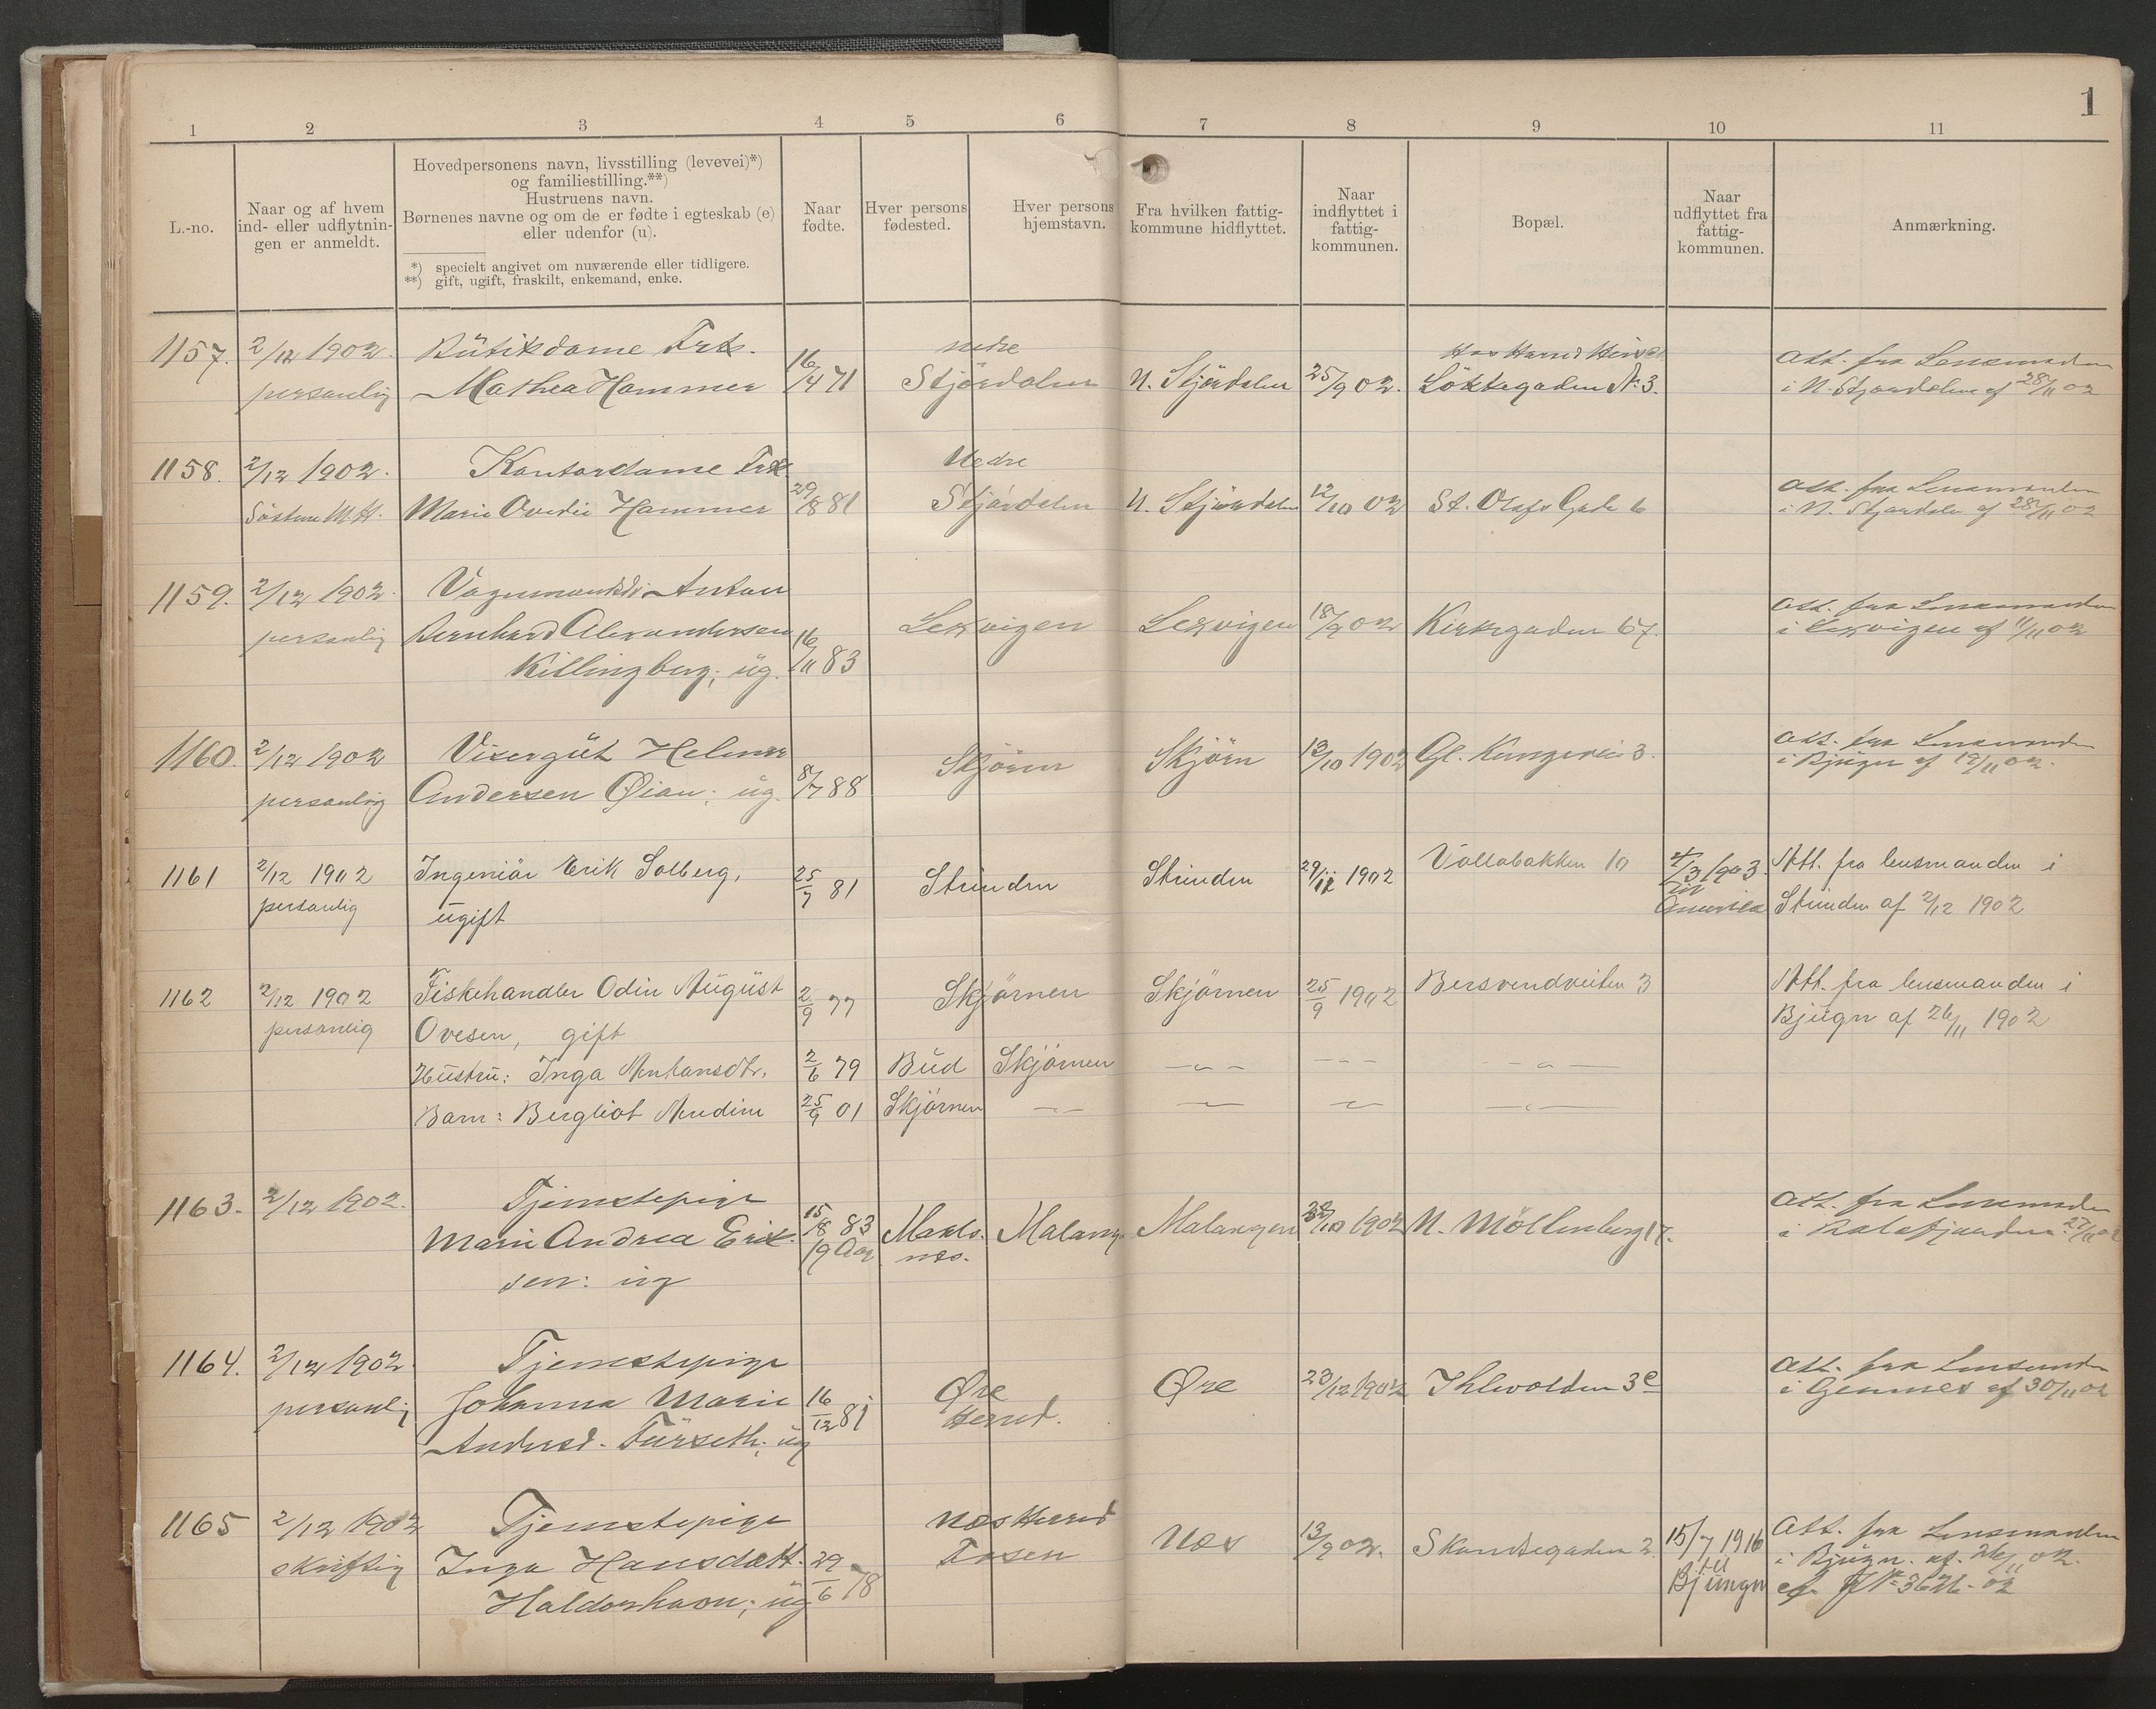 1
1 2 3 4 5 6 7 8 9 10 11
L.-no.
Naar og af hvem
ind- eller udflytnin-
gen er anmeldt.
Hovedpersonens navn, livsstilling (levevei)*)
og familiestilling.**)
Hustruens navn.
Børnenes navne og om de er fødte i egteskab (e)
eller udenfor (u).
*) specielt angivet om nuværende eller tidligere.
**) gift, ugift, fraskilt, enkemand, enke.
Naar
fødte.
Hver persons
fødested.
Hver persons
hjemstavn.
Fra hvilken fattig-
kommune hidflyttet.
Naar
indflyttet i
fattig-
kommunen.
Bopæl.
Naar
udflyttet fra
fattig-
kommunen.
Anmærkning.
1157. 2/12 1902. Bütikdame Frk. nedre Att. fra Lensmanden
personlig Mathea Hammer 16/4 71 Stjördalen N. Stjördalen 25/9 02. Löktegaden No 3. i N. Stjørdalen af 28/11 02
1158. 2/12 1902. Kontordame Frk. Nedre Att. fra Lensmanden
Söstren M.H. Marie Ovedie Hammer 29/8 81 Stjørdalen N. Stjørdalen 12/10 02 St. Olafs Gade 6 i N. Stjørdalen af 28/11 02
1159. 2/12 1902. Anton Att. fra Lensmanden
personlig Bernhard Alexandersen Lexvigen Lexvigen 18/9 02 Kirkegaden 67. i Lexvigen af 11/11 02
Killingberg; üg. 16/11 83
1160. 2/12 1902 Visergüt Helmer Skjörn Skjörn 13/10 1902 Gl. Kongevei 3. Att. fra Lensmanden
personlig Andersen Øian; üg. 8/7 88 i Bjügn af 19/11 02.
1161 2/12 1902 Ingeniör Erik Solberg, 25/7 81 Strinden Strinden 29/11 1902 Vollabakken 10 4/3 1903 Att. fra lensmanden i
personlig ügift til Amerika Strinden af 2/12 1902
1162 2/12 1902 Fiskehandler Odin Aügüst 2/9 77 Skjörnen Skjörnen 25/9 1902 Bersvendveiten 3 Att. fra lensmanden i
personlig Ovesen, gift Bjügn af 26/11 1902
Hüstrü: Inga Antonsdtr. 2/6 79 Bud Skjörnen — " — — " — — " —
Barn: Bergliot Andine 25/9 01 Skjörnen — " — — " — — " — — " —
1163. 2/12 1902. Tjenestepige 15/8 83 Att. fra Lensmanden
Marie Andrea Erik- 19 Aar Malangen 10 1902 N. Möllenberg 17. i Balsfjorden 27/11 02
sen: üg
1164. 2/12 1902 Tjenestepige Att. fra Lensmanden
personlig Johanna Marie 16/12 81 Øre Herred. Øre 23/12 1902 Ihlevolden 3c i Gjemnes af 30/11 02
Andersd. Fürseth; üg
1165 2/12 1902 Tjenestepige Næs Herred Næs 13/9 02. Skandsegaden 2. 15/7 1916 Att. fra Lensmanden
skriftlig Inga Hansdatt. 29/6 78 Fosen til i Bjügn. af. 26/11 02.
Haldorshavn; üg Bjüngn cfr. JNo 3626-02